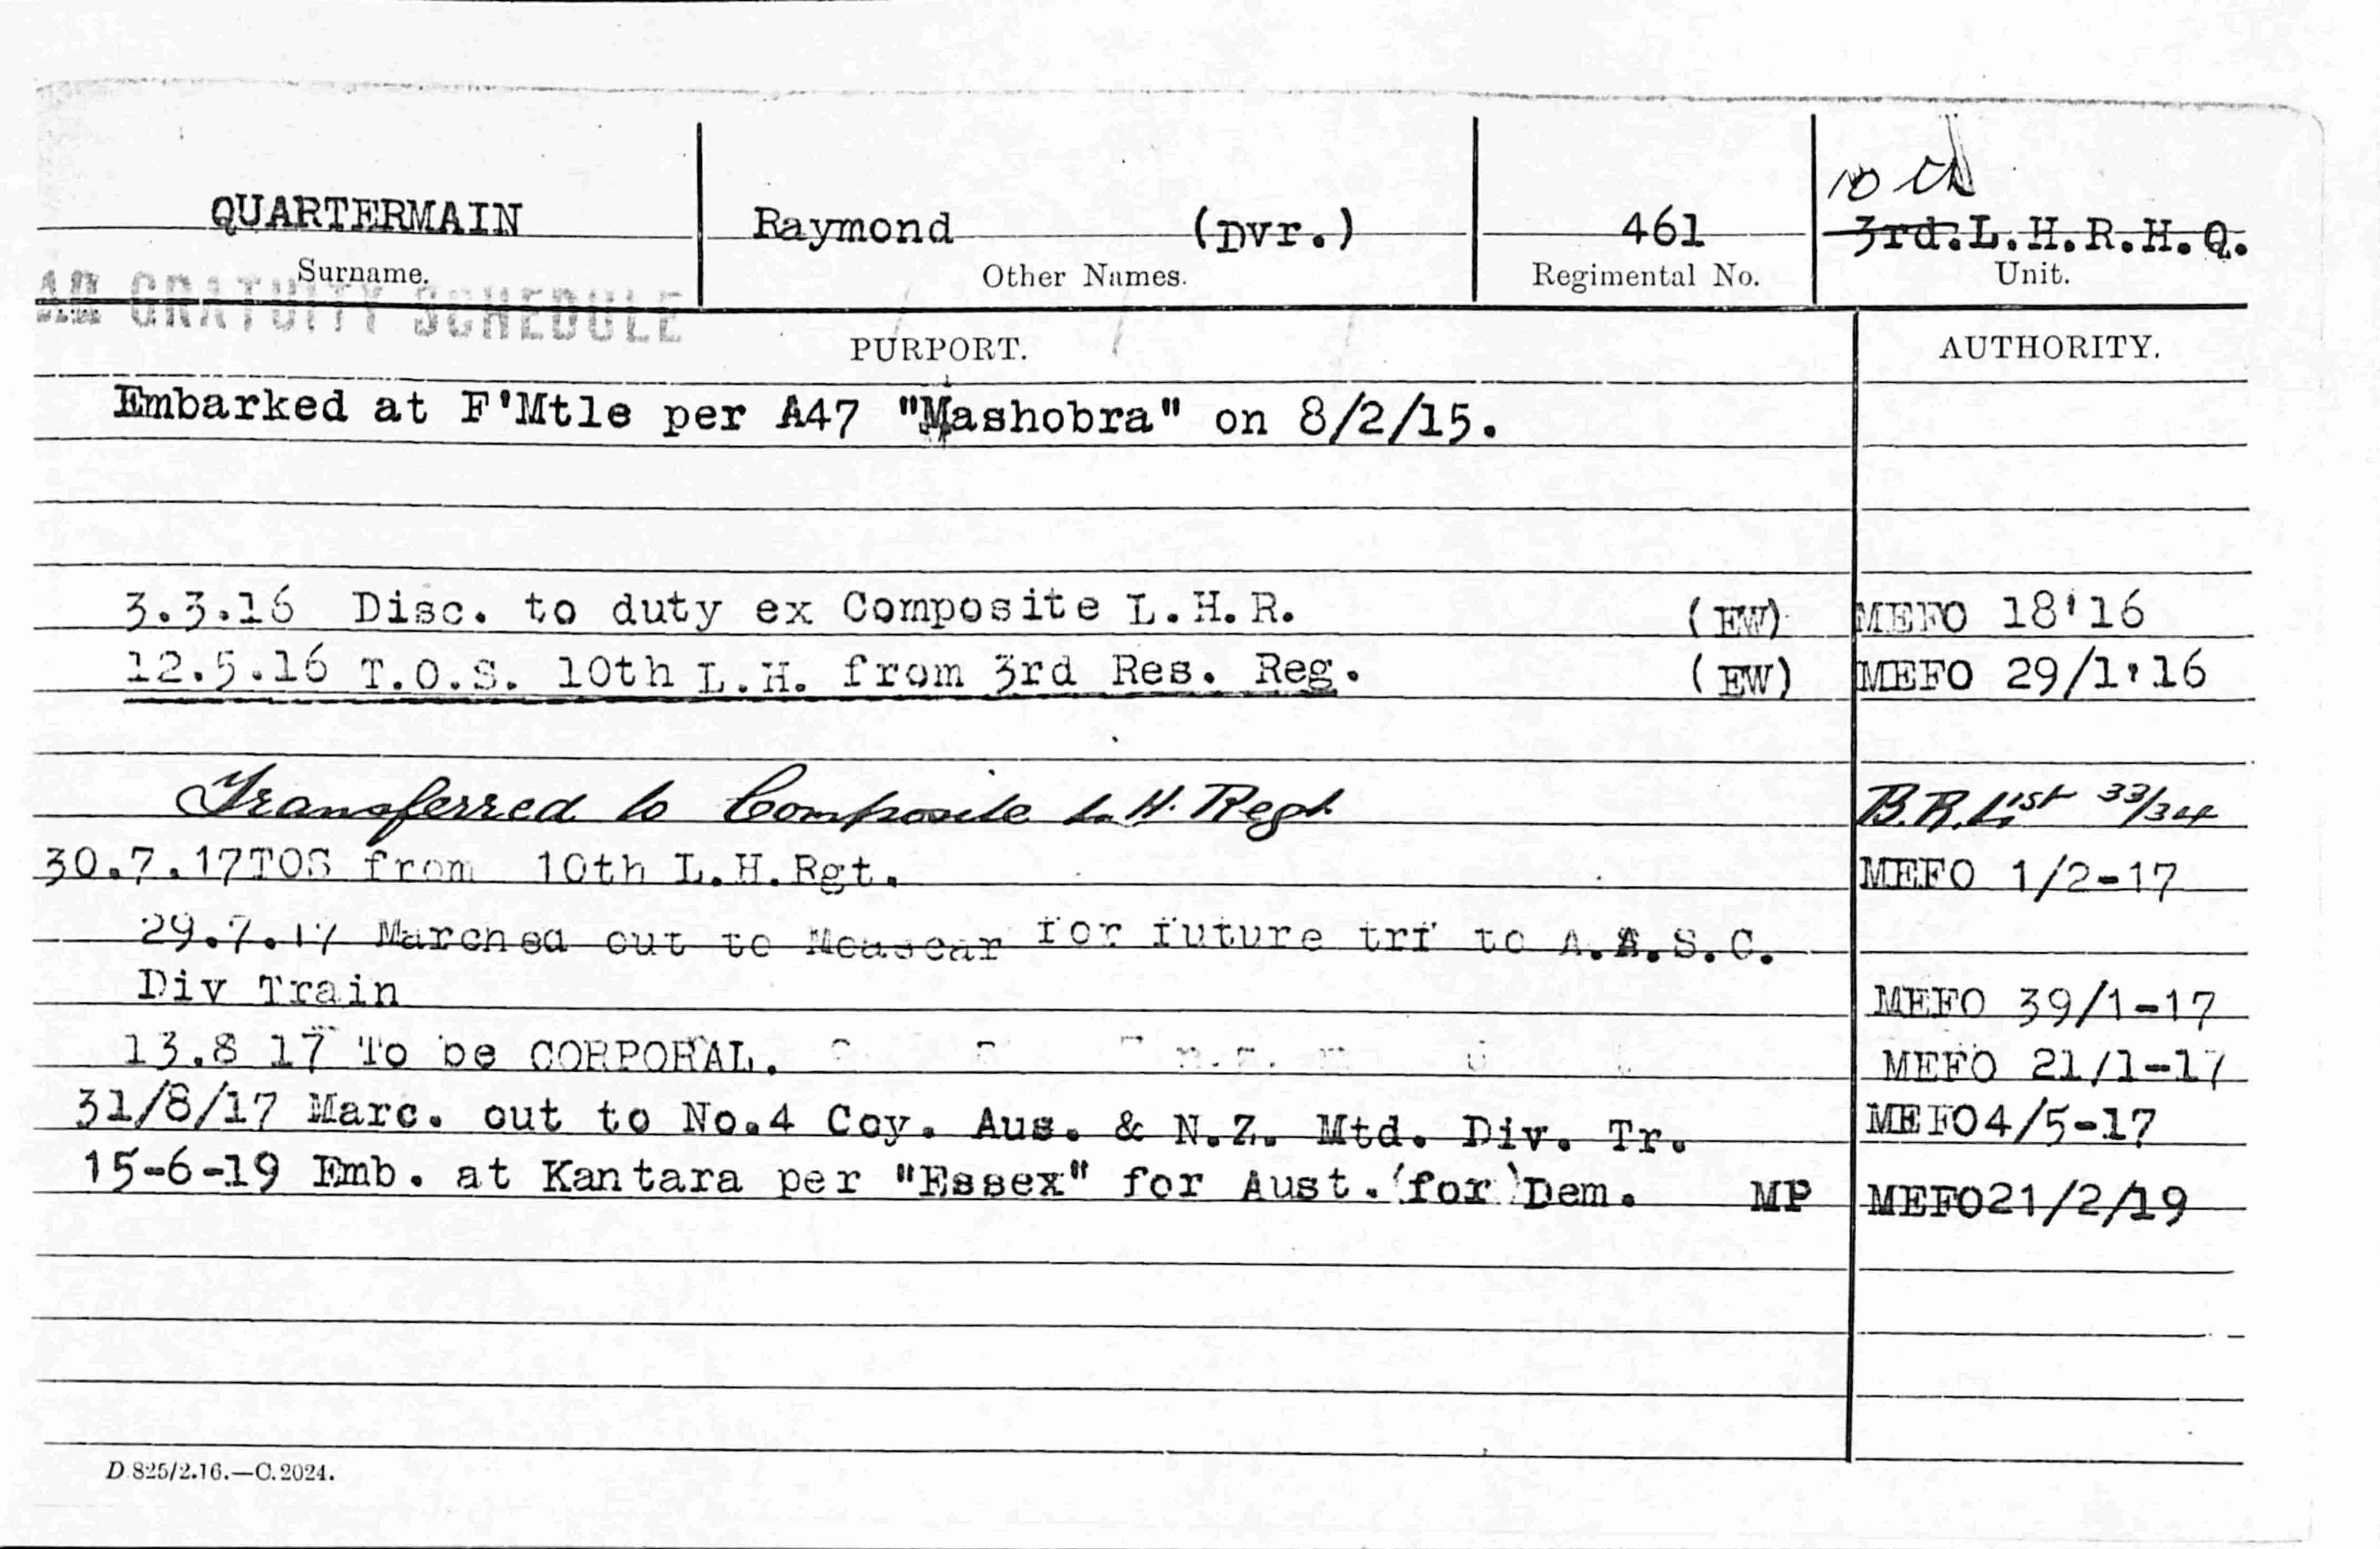 10th
QUARTERMAIN Raymond (Dvr.) 461 3rd.L.H.R.H.Q.
Surname. Other Names. Regimental No. Unit.
GRATUITY SCHEDULE
PURPORT. AUTHORITY.
Embarked at F'Mtle per A47 "Mashobra" on 8/2/15.
3.3.16 Disc. to duty ex Composite L.H.R. (EW) MEFO 18'16
12.5.16 T.O.S. 10th L.H. from 3rd Res. Reg. (EW) MEFO 29/1'16
Transferred to Composite L.H. Regt. B.R.List 33/34
30.7.17TOS from 10th L.H.Rgt. MEFO 1/2-17
29.7.17 Marched out to Moascar for future trf to A.A.S.C.
Div Train MEFO 39/1-17
13.8 17 To be CORPORAL. MEFO 21/1-17
31/8/17 Marc. out to No.4 Coy. Aus. & N.Z. Mtd. Div. Tr. MEFO4/5-17
15-6-19 Emb. at Kantara per "Essex" for Aust. for Dem. MP MEFO21/2/19
D 825/2.16.—C.2024.